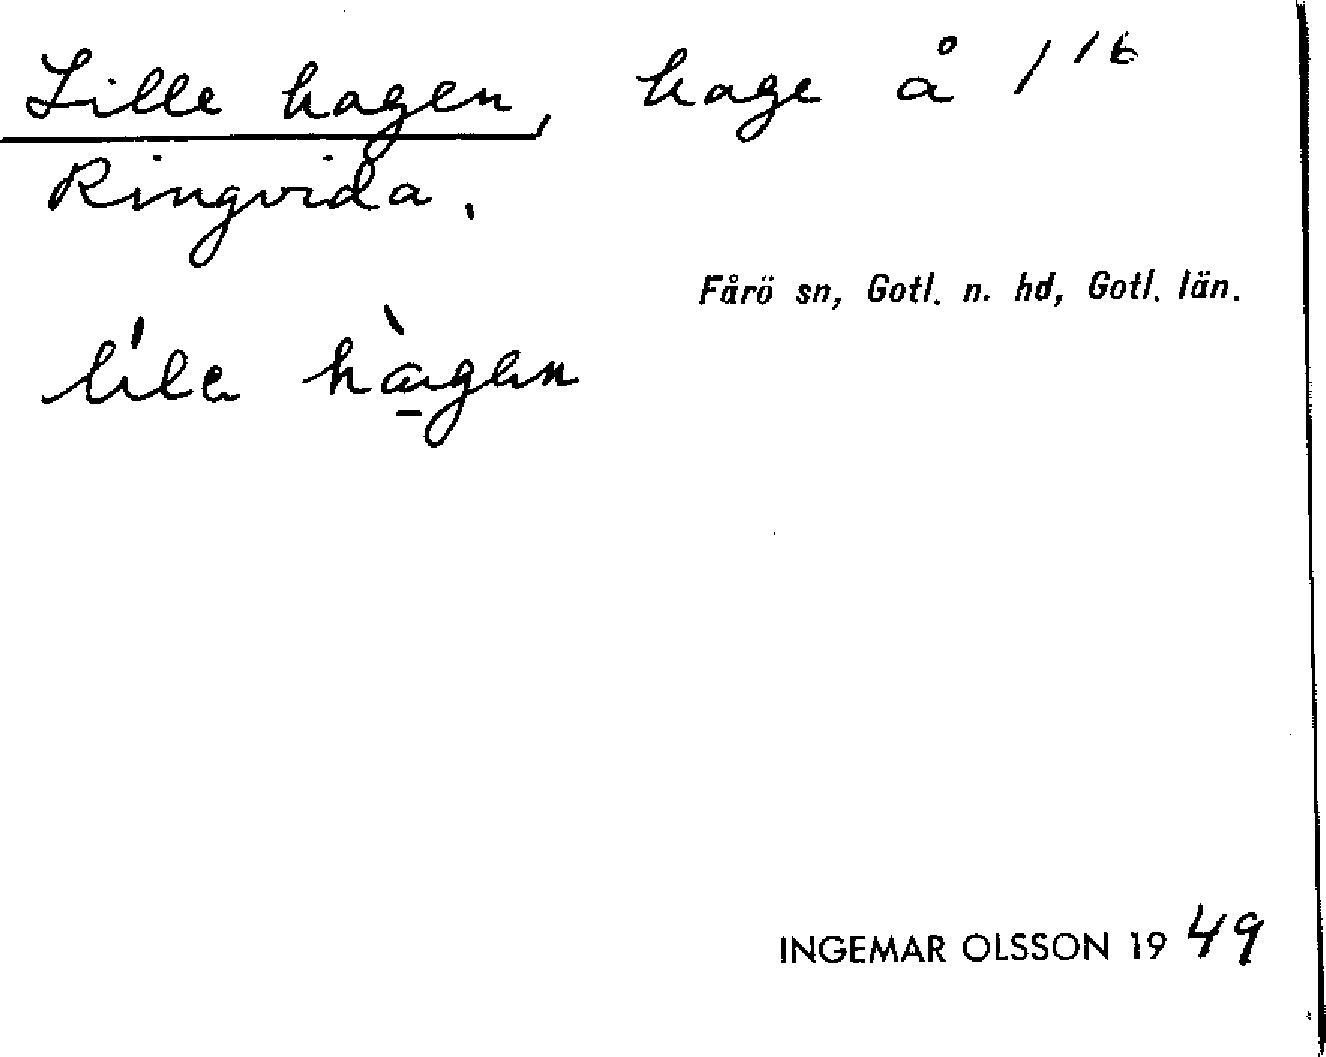 Lille hagen, hage å 1 16
Ringvida.
Fårö sn, Gotl. n. hd, Gotl. län.
lile hagen
INGEMAR OLSSON 1949